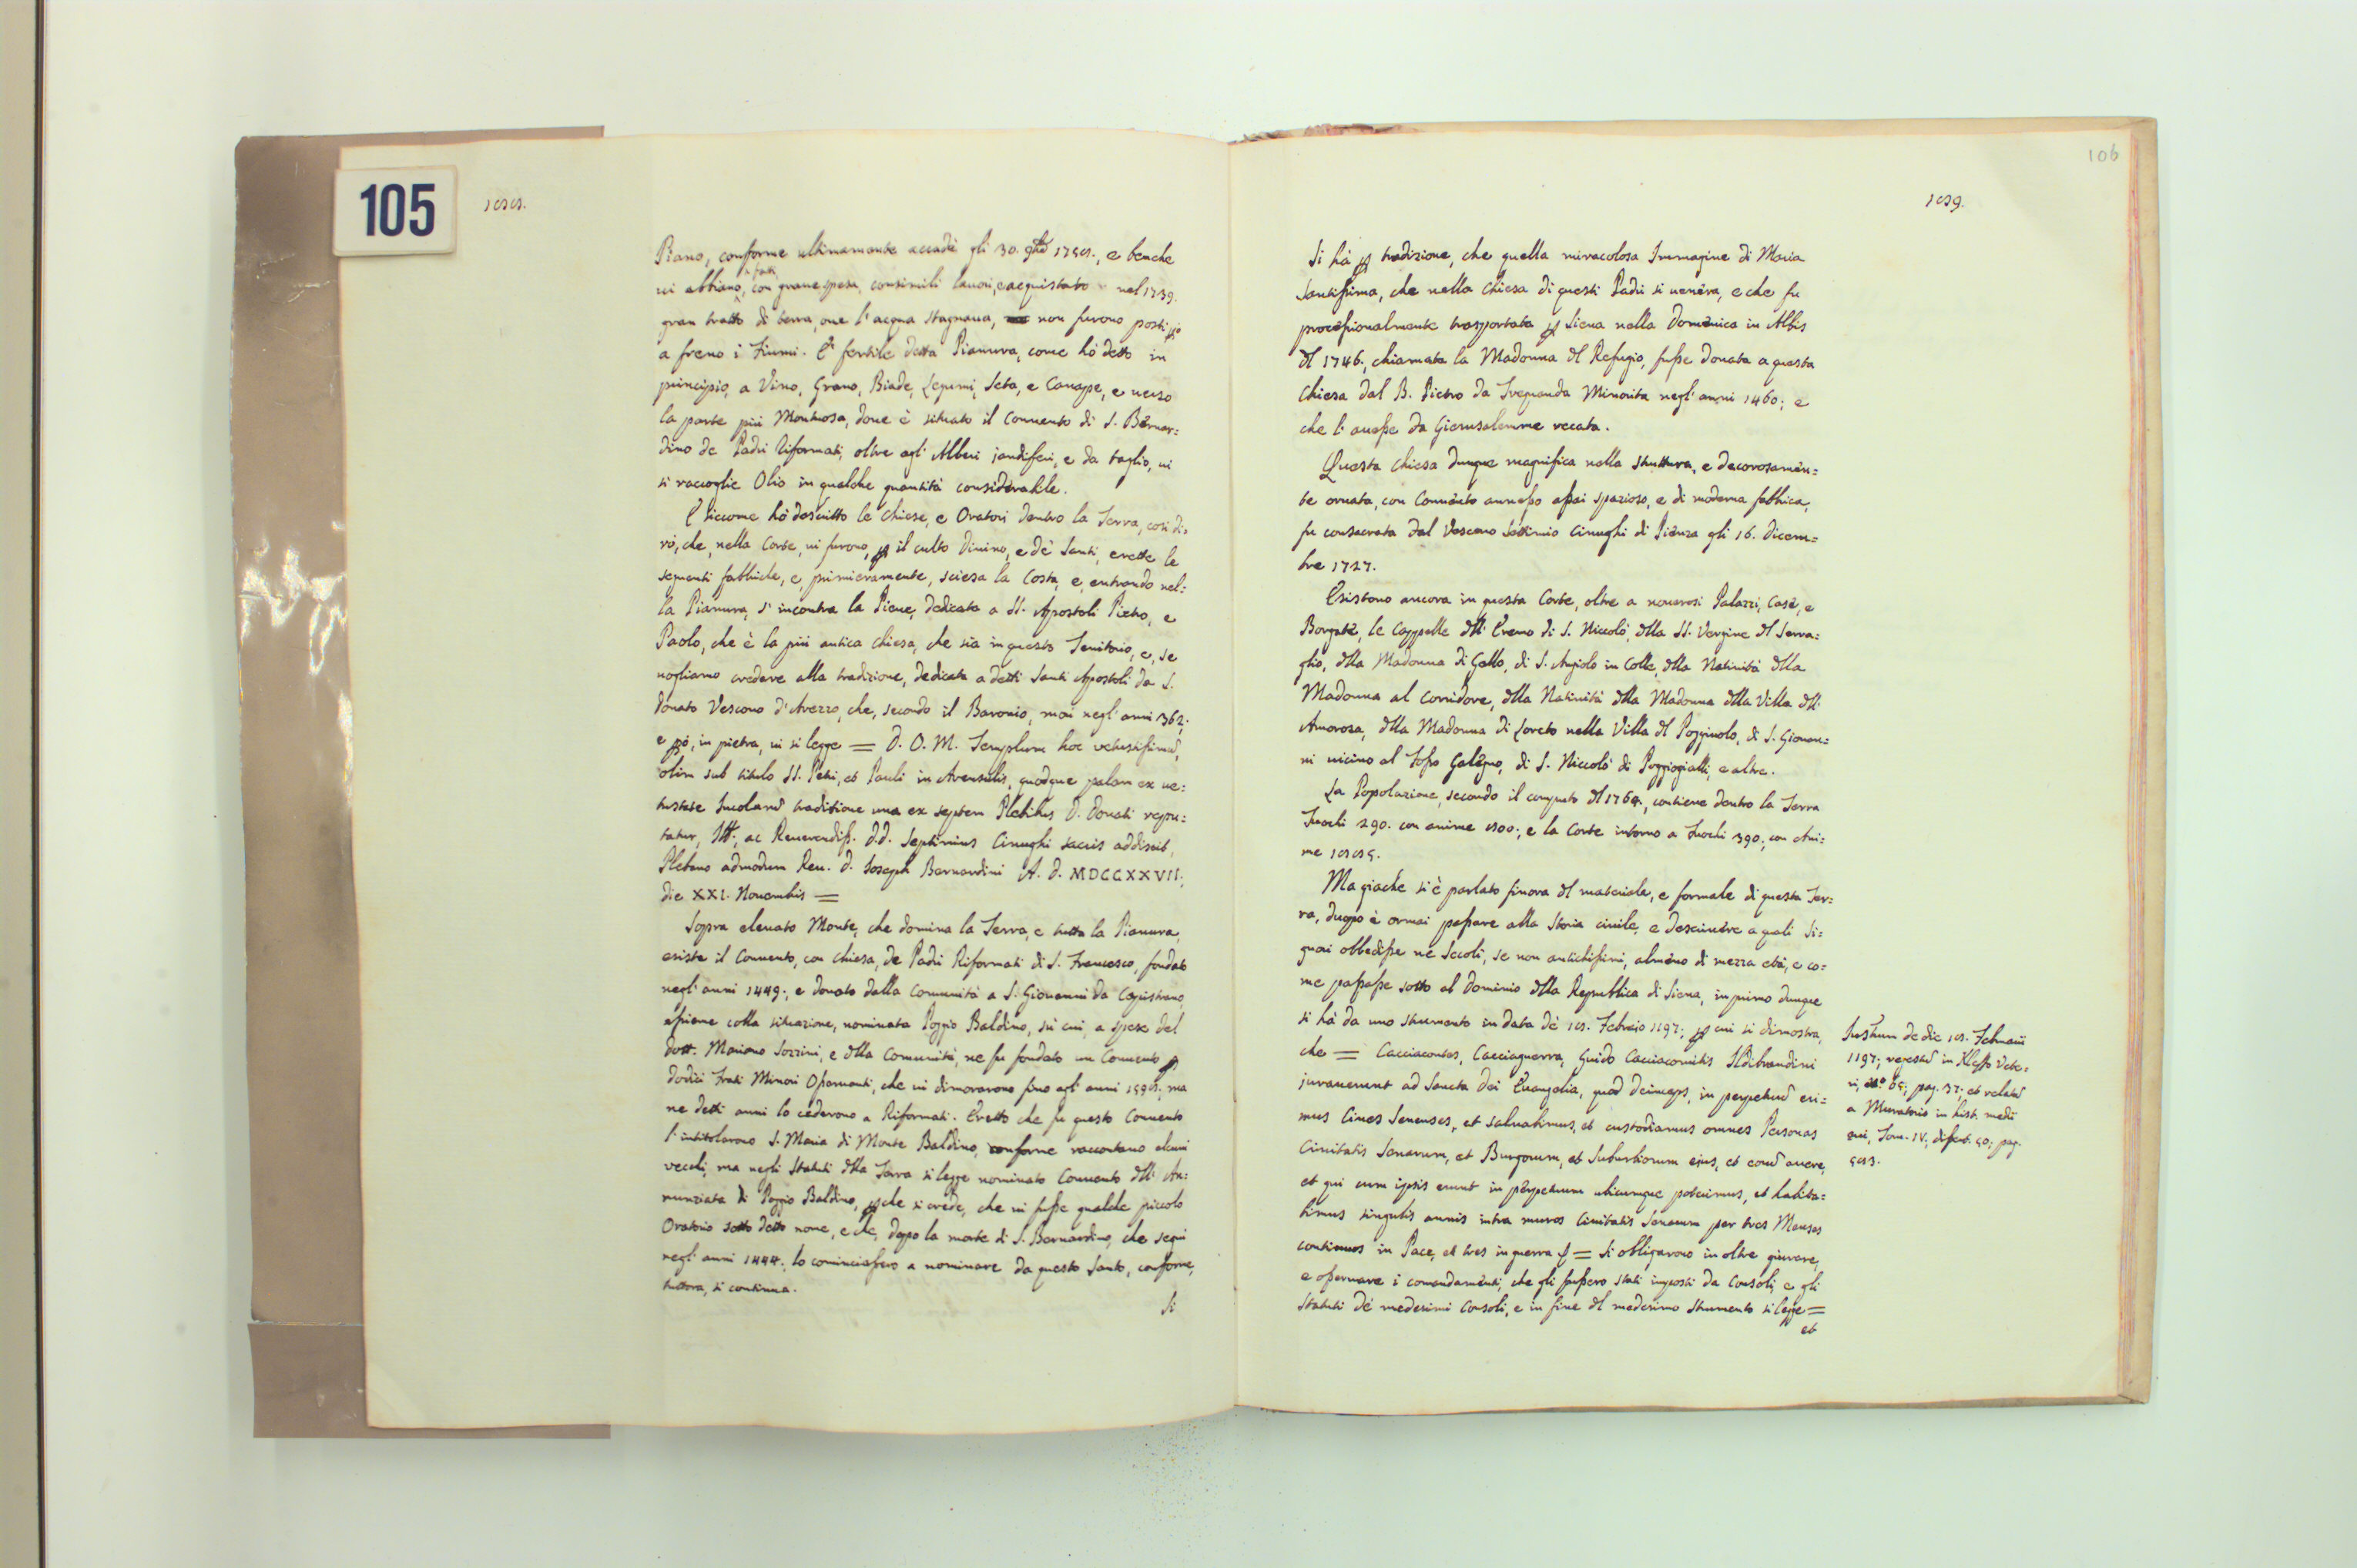 105
Piano, conforme ultimamente accadde gli 30. 9bre 1758., e benche
vi abbiano, fatti con grave spesa, consimili lavori, e acquistato nel 1739.
gran tratto di terra, ove l'acqua stagnava, non furono posti
a freno i Fiumi. È fertile detta Pianura, come hò detto in
principio, a Vino, Grano, Biade, Legumi, Seta, e Canape, e verso
la parte più Montuosa, dove è situato il Convento di S. Bernar:
dino de Padri Riformati, oltre agl' Alberi jandiferi, e da taglio, vi
si raccoglie Olio in qualche quantità considerabile.
E siccome hò descritto le Chiese, e Oratori dentro la Terra, così di:
rò, che, nella Corte, vi furono, p il culto Divino, e dè Santi, erette le
seguenti fabbriche, e primieramente, scesa la Costa, e, entrando nel:
la Pianura, s' incontra la Pieve, dedicata a SS. Apostoli Pietro, e
Paolo, che è la più antica Chiesa, che sia in questo Territorio, e, se
vogliamo credere alla tradizione, dedicata a detti Santi Apostoli da S.
Donato Vescovo d'Arezzo, che, secondo il Baronio, morì negl' anni 362;
e però, in pietra, vi si legge = D. O. M. Templum hoc vetustissimū,
olim sub titulo SS. Petri, et Pauli in Avensulis, quodque palam ex ve:
tustate Incolarū traditione una ex septem Plebibus D. Donati repu:
tatur, Ill. ac Reverendiss. D.D. Septimius Cinughi sacris addixit,
Plebano admodum Rev. D. Joseph Bernardini A. D. MDCCXXVII.
die XXI. Novembris =
Sopra elevato Monte, che domina la Terra, e tutta la Pianura,
esiste il Convento, con Chiesa, de Padri Riformati di S. Francesco, fondato
negl' anni 1449., e donato dalla Comunità a S. Giovanni da Capistrano,
assieme colla situazione, nominata Poggio Baldino, sù cui, a spese del
Dott. Mariano Sozzini, e dlla Comunità, ne fu fondato un Convento p
dodici Frati Minori Osservanti, che vi dimorarono fino agl' anni 1598., ma
ne detti anni lo cederono a Riformati. Eretto che fu questo Convento
l'intitolarono S. Maria di Monte Baldino, conforme raccontano alcuni
vecchi, ma negli Statuti dlla Terra si legge nominato Convento dll' An:
nunziata di Poggio Baldino, pche si crede, che vi fusse qualche piccolo
Oratorio sotto detto nome, e che, dopo la morte di S. Bernardino, che seguì
negl' anni 1444., lo cominciassero a nominare da questo Santo, conforme,
tuttora, si continua.
Si
106
1039.
Si hà p tradizione, che quella miracolosa Immagine di Maria
Santissima, che nella Chiesa di questi Padri si venera, e che fu
processionalmente trasportata p Siena nella Domenica in Albis
dl 1746., chiamata la Madonna dl Refugio, fusse donata a questa
Chiesa dal B. Pietro da Trequanda Minorita negl' anni 1460; e
che l' avesse da Gierusalemme recata.
Questa Chiesa dunque magnifica nella struttura, e decorosamen:
te ornata, con Convento annesso assai spazioso, e di moderna fabbrica,
fu consacrata dal Vescovo Settimio Cinughi di Pienza gli 16. Dicem:
bre 1727.
Esistono ancora in questa Corte, oltre a numerosi Palazzi, Case, e
Borgate, le Cappelle dll' Eremo di S. Niccolò, dlla SS. Vergine dl Serra:
glio, dlla Madonna di Gallo, di S. Angiolo in Colle, dlla Natività dlla
Madonna al Corridore, dlla Natività dlla Madonna dlla Villa dll'
Amorosa, dlla Madonna di Loreto nella Villa dl Poggiuolo, di S. Giovan:
ni vicino al Fosso Galegno, di S. Niccolò di Poggiogialli, e altre.
La Popolazione, secondo il computo dl 1764., contiene dentro la Terra
Fuochi 290. con anime 1300; e la Corte intorno a Fuochi 390., con Ani:
me
Ma giache si è parlato finora dl materiale, e formale di questa Ter:
ra, duopo è ormai passare alla Storia civile, e descrivere a quali Si:
gnori obbedisse nè Secoli, se non antichissimi, almeno di mezza età, e co:
me passasse sotto al Dominio dlla Repubblica di Siena, in primo dunque
si hà da uno strumento in data dè 18. Febraio 1197; p cui si dimostra,
che = Cacciacontes, Cacciaguerra, Guido Cacciacomitis Ildibrandini
juraverunt ad Sancta Dei Euangelia, quod deinceps, in perpetuū eri:
mus Cives Senenses, et salvabimus, et custodiamus omnes Personas
Civitatis Senarum, et Burgorum, et Suburbiorum ejus, et eorū avere,
et qui cum ipsis erunt in perpetuum ubicumque poterimus, et habita:
bimus singulis annis intra muros Civitatis Senarum per tres Menses
continuos in Pace, et tres in guerra = Si obbligarono in oltre giurare,
e osservare i comandamenti, che gli fussero stati imposti da Consoli, e gli
Statuti dè medesimi Consoli, e in fine dl medesimo strumento si legge =
et
Instrum de die 18. Februarii
1197; regestū in Vete:
ri, pag. 37; et relatū
a Muratorio in hist. medi
aevi, Tom. IV; dissert. 50; pag.